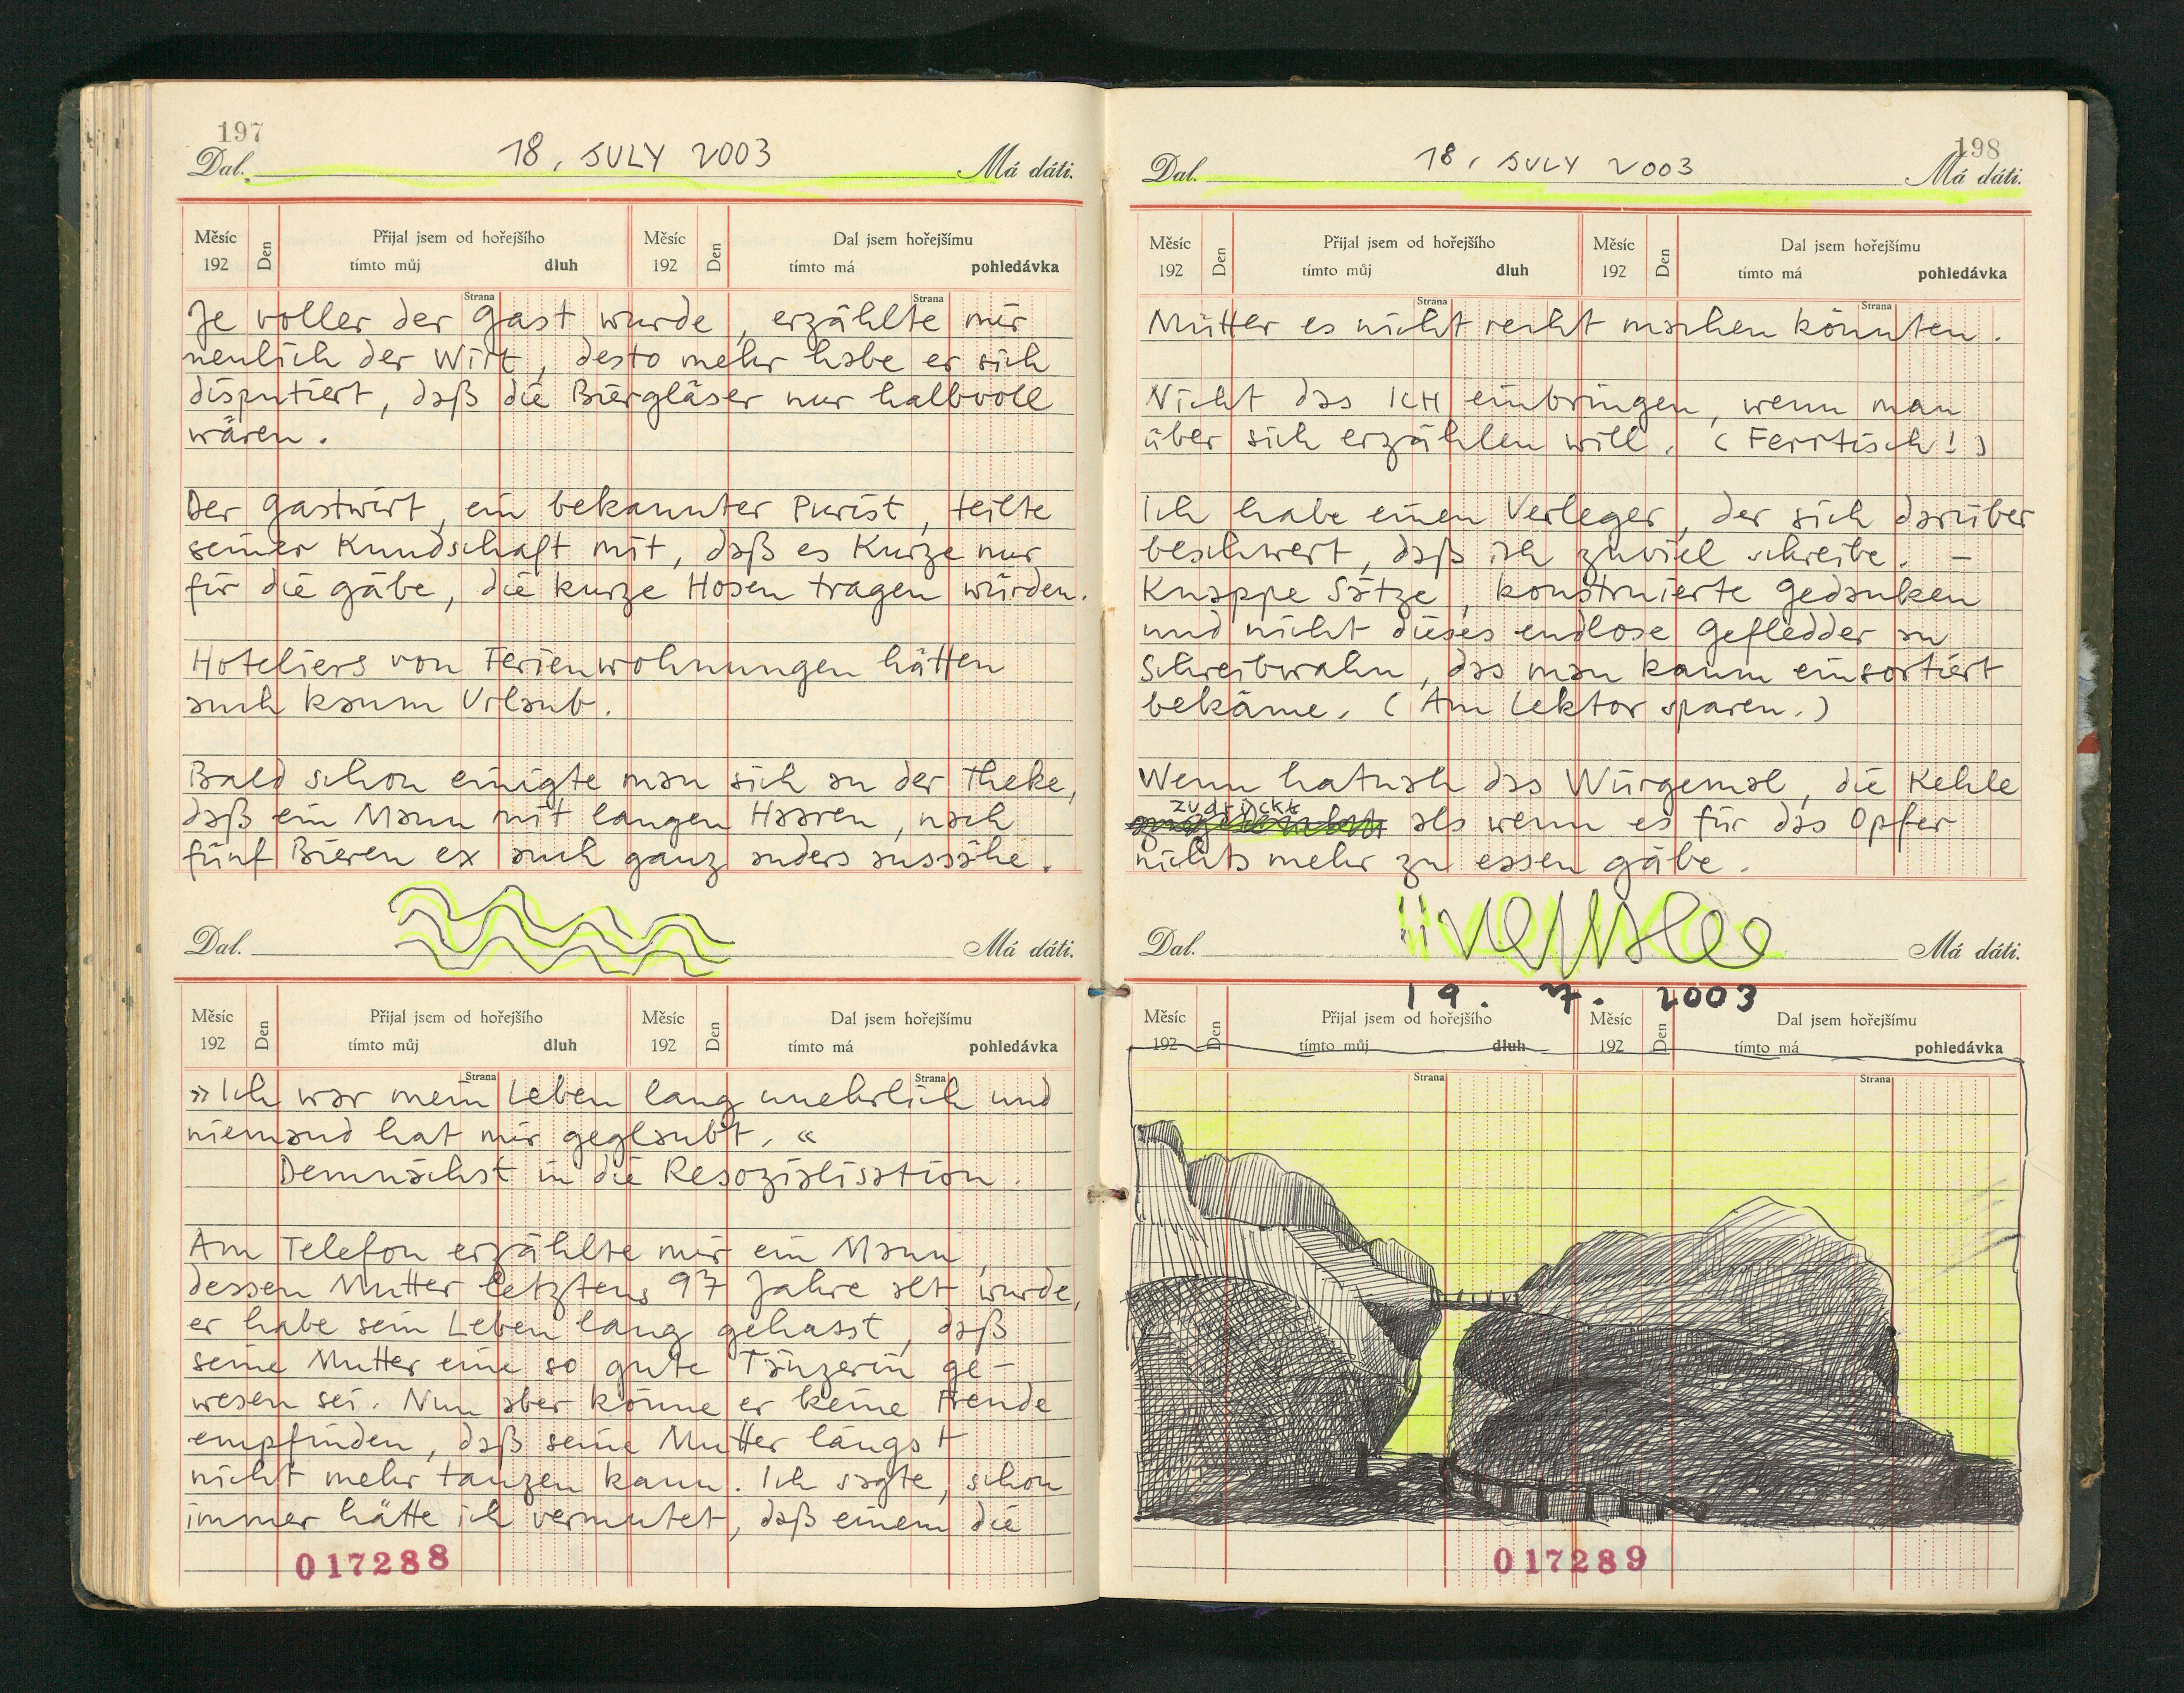 197
18. JULY 2003
Dal. Má dáti.
Měsíc Den Přijal jsem od hořejšího Měsíc Den Dal jsem hořejšímu
192 tímto můj dluh 192 tímto má pohledávka
Strana Strana
Je voller der Gast wurde, erzählte mir
neulich der Wirt, desto mehr habe er sich
disputiert, daß die Biergläser nur halbvoll
wären.
Der Gastwirt, ein bekannter Purist, teilte
seiner Kundschaft mit, daß es Kurze nur
für die gäbe, die kurze Hosen tragen würden.
Hoteliers von Ferienwohnungen hätten
auch kaum Urlaub.
Bald schon einigte man sich an der Theke,
daß ein Mann mit langen Haaren, nach
fünf Bieren ex auch ganz anders aussähe.
Dal. Má dáti.
Měsíc Den Přijal jsem od hořejšího Měsíc Den Dal jsem hořejšímu
192 tímto můj dluh 192 tímto má pohledávka
Strana Strana
»Ich war mein Leben lang unehrlich und
niemand hat mir geglaubt.«
Demnächst in die Resozialisation.
Am Telefon erzählte mir ein Mann,
dessen Mutter letztens 97 Jahre alt wurde,
er habe sein Leben lang gehasst, daß
seine Mutter eine so gute Tänzerin ge-
wesen sei. Nun aber könne er keine Freude
empfinden, daß seine Mutter längst
nicht mehr tanzen kann. Ich sagte, schon
immer hätte ich vermutet, daß einem die
017288
198
18. JULY 2003
Dal. Má dáti.
Měsíc Den Přijal jsem od hořejšího Měsíc Den Dal jsem hořejšímu
192 tímto můj dluh 192 tímto má pohledávka
Strana Strana
Mütter es nicht recht machen könnten.
Nicht das ICH einbringen, wenn man
über sich erzählen will. (Ferritisch!)
Ich habe einen Verleger, der sich darüber
beschwert, daß ich zuviel schreibe. –
Knappe Sätze, konstruierte Gedanken
und nicht dieses endlose Gefledder an
Schreibwahn, das man kaum einsortiert
bekäme. (Am Lektor sparen.)
Wenn hatnah das Würgemal, die Kehle
zudrückt
als wenn es für das Opfer
nichts mehr zu essen gäbe.
Dal. Má dáti.
19. 7. 2003
Měsíc Den Přijal jsem od hořejšího Měsíc Den Dal jsem hořejšímu
192 tímto můj dluh 192 tímto má pohledávka
Strana Strana
017289